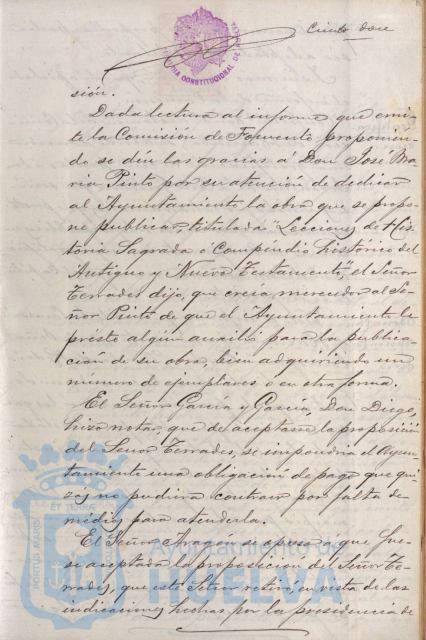 Ciento doce
ALCALDIA CONSTITUCIONAL DE HUELVA
sión.
Dada lectura al informe que emi-
te la Comisión de Fomento proponien-
do se dén las gracias á Don José Ma-
ria Pinto por su atención de dedicar
al Ayuntamiento la obra que se propo-
ne publicar, titulada "Lecciones de His-
toria Sagrada ó Compendio histórico del
Antiguo y Nuevo Testamento", el Señor
Terrades dijo, que creia merecedor al Se-
ñor Pinto de que el Ayuntamiento le
preste algún auxilio para la publica-
ción de su obra, bien adquiriendo un
número de ejemplares ó en otra forma.
El Señor García y García, Don Diego,
hizo notar, que de aceptarse la proposición
del Señor Terrades, se impondria el Ayun-
tamiento una obligación de pago que qui-
zás no pudiera contraer por falta de
medios para atenderla.
El Señor Aragón se opuso á que fue-
se aceptada la proposición del Señor Te-
rrades, que este Señor retiró, en vista de las
indicaciones hechas por la presidencia de
PORTUS MARIS ET TERRAE
Ayuntamiento de
HUELVA